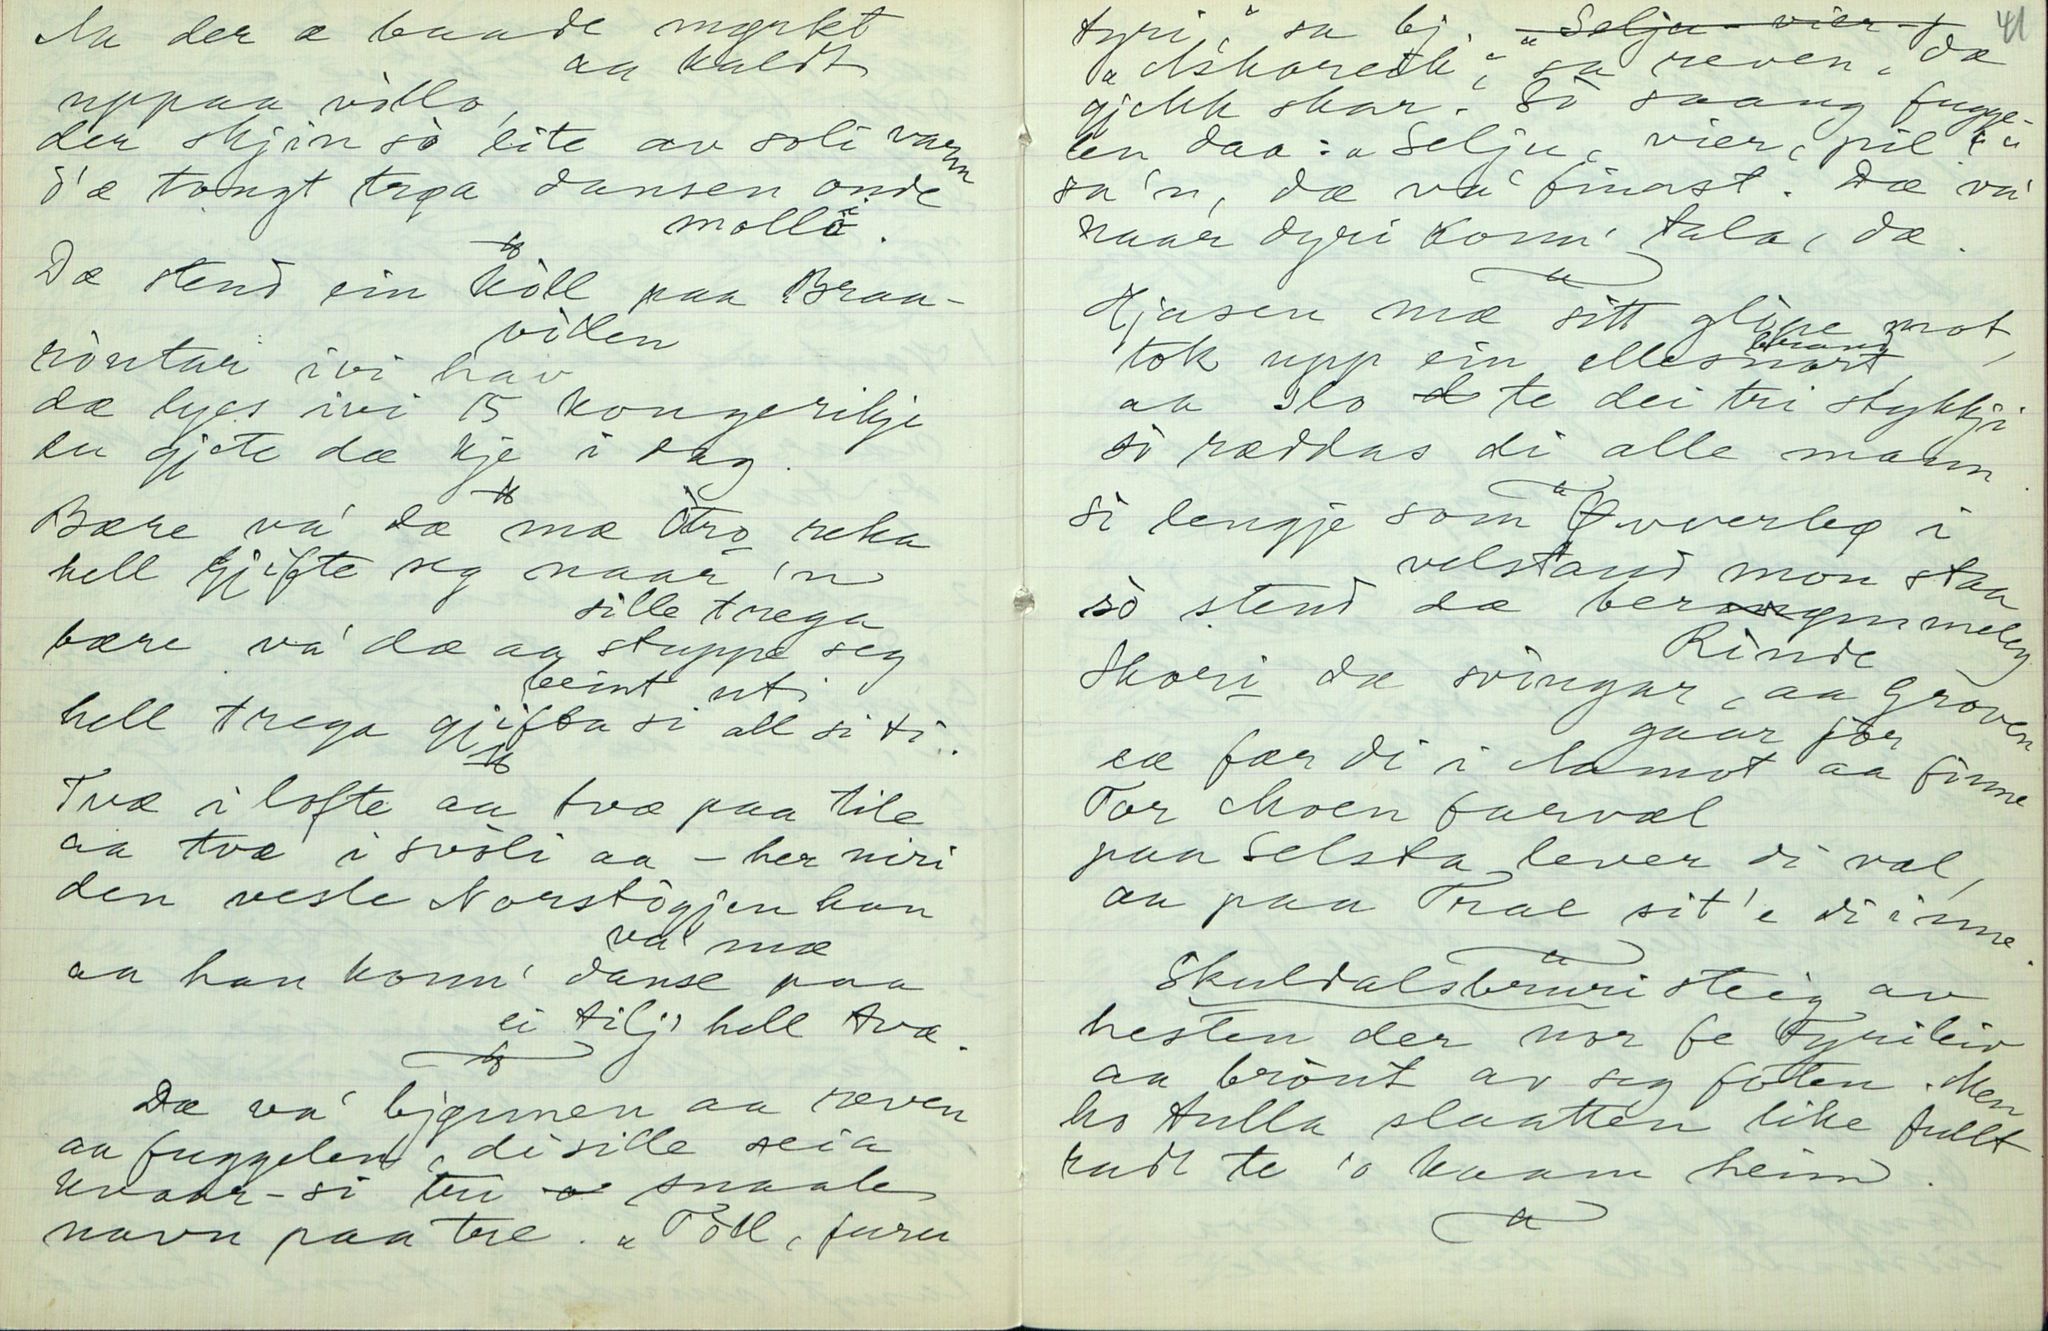 Aa der æ baade mørkt
aa kaldt
uppaa vòllo,
der skjin sò lite av soli varm
d'æ tongt trøa dansen onde
mollò.
Dæ stend ein kòll paa Braa-
viden
ròntar ivi hav
dæ lyes ivi 15 kongerikje
en gjete dæ kje i dag.
Bære va' dæ mæ òtro reka
hell gjifte seg naar 'n
sille trega
bære va' dæ aa stuppe seg
beint uti
hell trega gjifta si all si ti.
Tvæ i lofte aa tvæ paa tile
aa tvæ i svòli aa – her niri
den vesle Norstògjen han
va' mæ
aa han konn' danse paa
ei tilj' hell tvæ.
Dæ va' bjønnen aa ræven
aa fuggelen, di sille seia
kvaar-si tri snaale
navn paa tre. „Tòll, furu
41
tyri," sa bj. „Selju – vier – p
„Askoreisk", sa reven, dæ
gjekk skar. Sò saang fugge-
len daa: „Selju, vier, pil",
sa'n, dæ va' finast. Dæ va'
naar dyri konn' tala, dæ.
Hjasen mæ sitt glipe mot,
tok upp ein ellesnart brand
aa slo te dei tri stykkji
sò ræddas di alle mann.
Sò lengje som Øvverbø i
velstand mon staa
sò stend dæ berømmeleg
Rinde
Skori dæ svingar, aa Groven
gaar jòr
eæ fær di i Aamot aa finne
Tor Moen farvæl
paa Selsta lever di væl,
aa paa Træe sit'e di inne.
Skuldalsbruri steig av
hesten der nor fe Tyrileiv
aa brònt av seg fòten. Men
ho tulla slaatten like fullt
radt te 'o kaam heim.